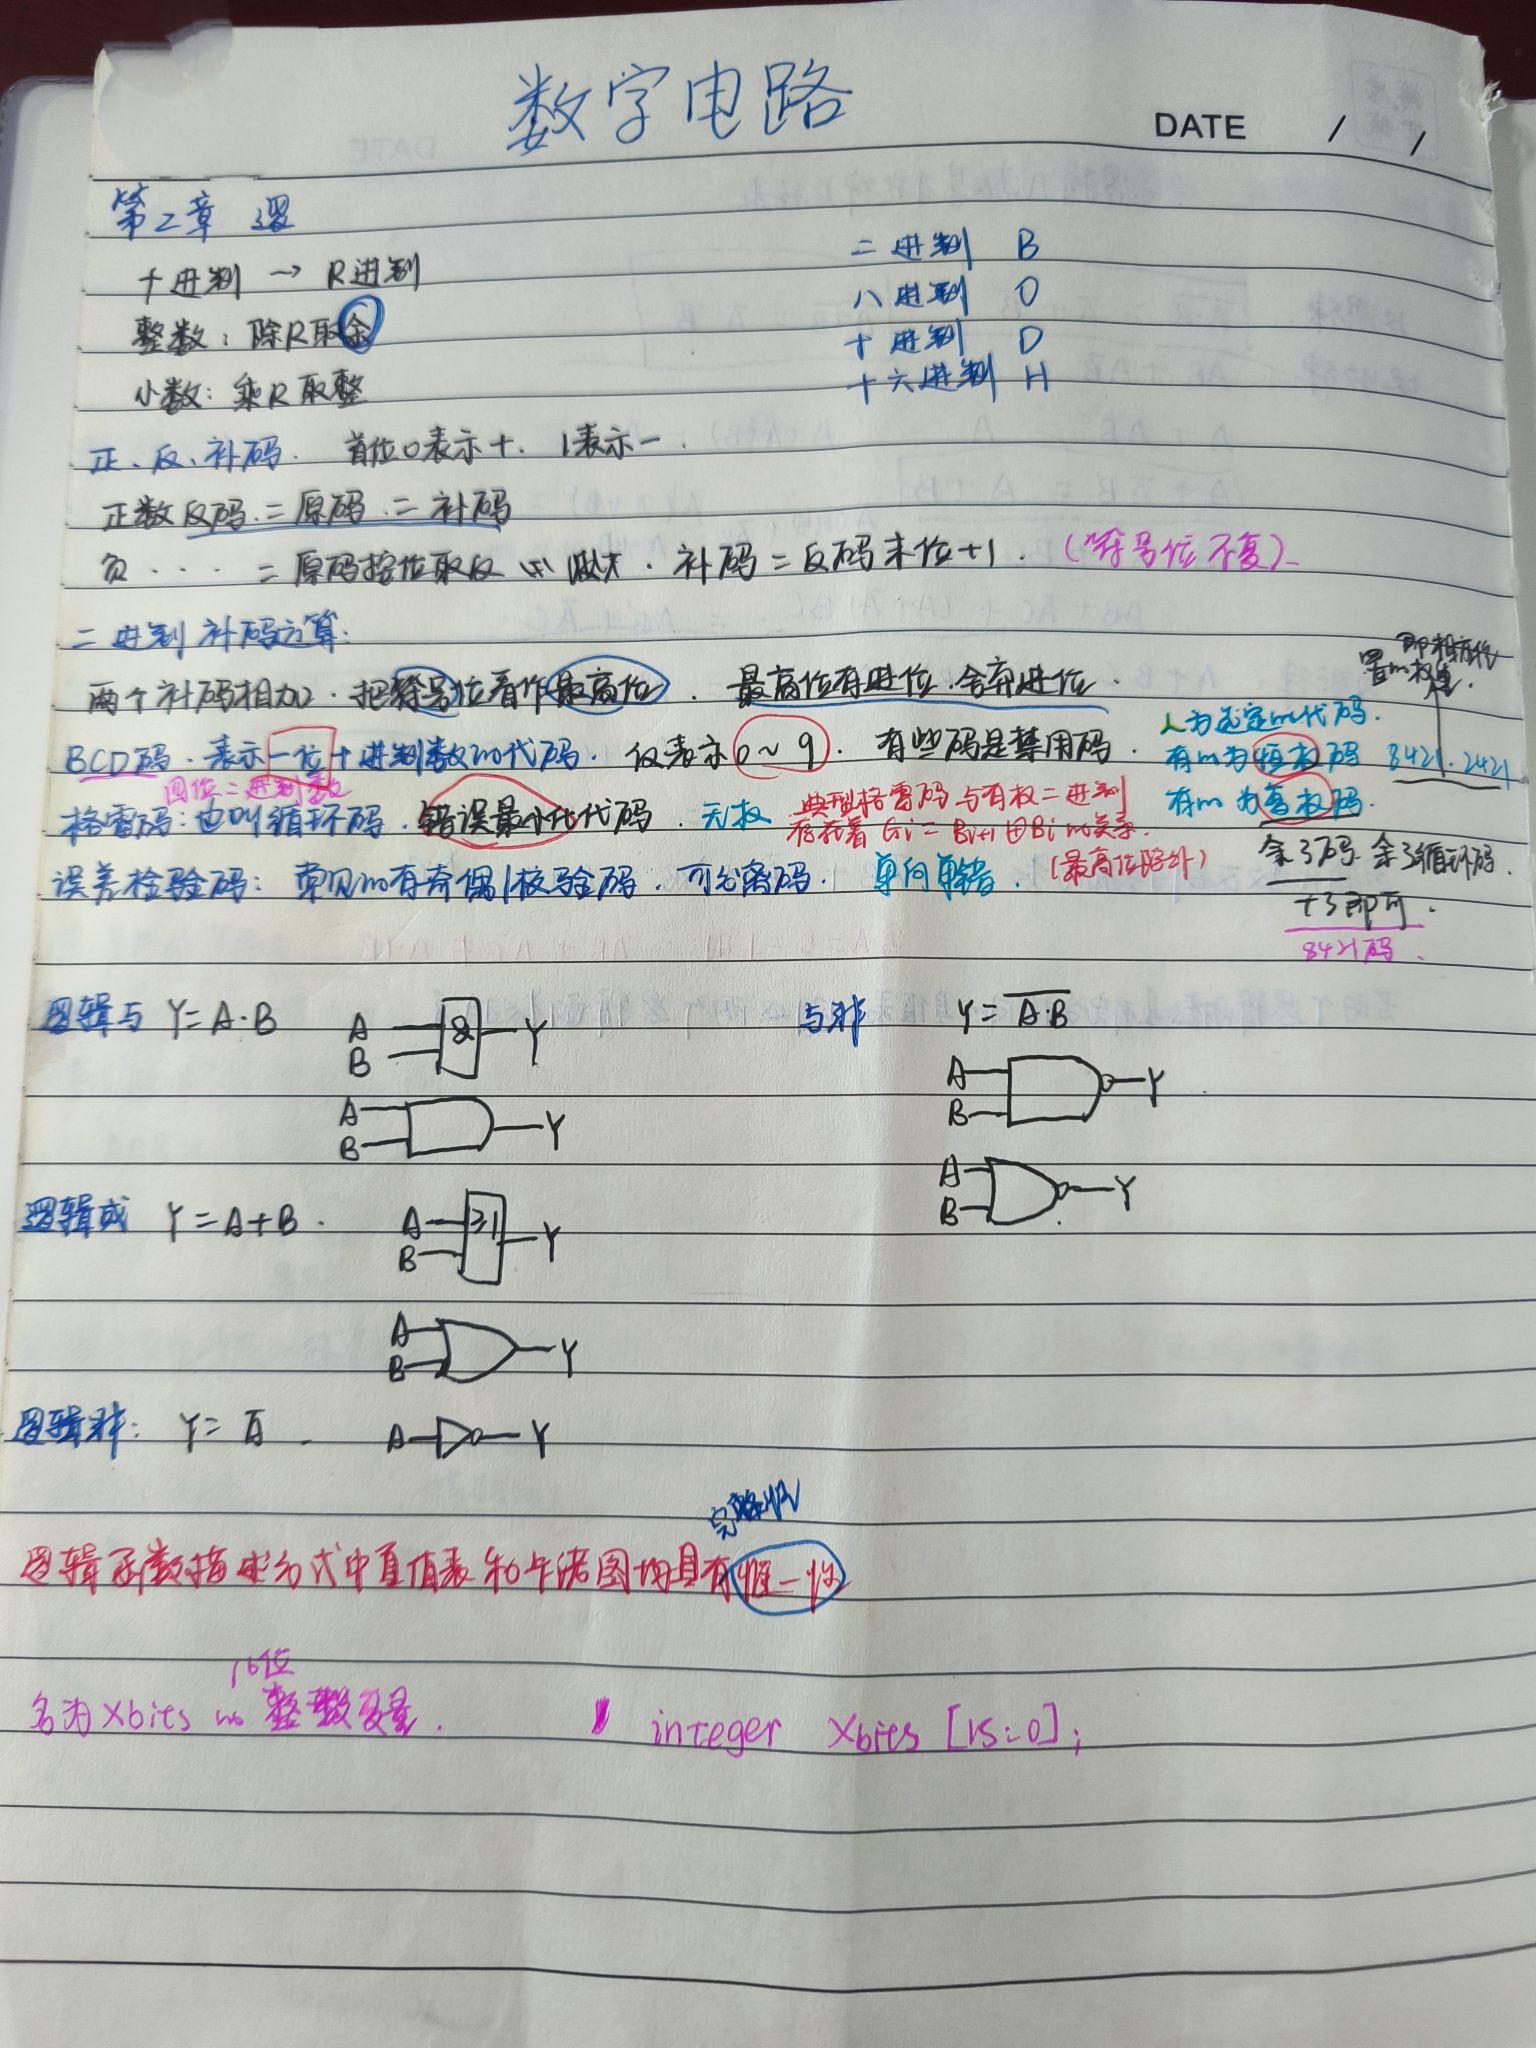 数字电路
DATE / /
第二章 逻
十进制 → R进制
二进制 B
整数：除R取余
八进制 O
十进制 D
小数：乘R取整
十六进制 H
正、反、补码. 首位0表示+. 1表示-.
正数反码 = 原码 = 补码
负 · · · · = 原码按位取反 补码 = 反码末位+1. (符号位不变)
二进制补码运算:
两个补码相加. 把符号位看作最高位. 最高位有进位. 舍弃进位.
即相应位置的权重.
BCD码. 表示一位十进制数的代码. 仅表示0~9. 有些码是禁用码.
四位二进制数
人为选定的代码.
有的为恒权码 8421. 2421
有的为变权码.
余3码 余3循环码.
+3即可.
8421码.
格雷码: 也叫循环码. 错误最小化代码. 无权
典型格雷码与有权二进制
存在着 Gi = Bi+1⊕Bi 的关系.
(最高位除外)
误差检验码: 常见的有奇偶校验码. 可分离码. 单向单错.
逻辑与 Y=A·B
A B & Y
A B Y
与非 Y=\overline{A·B}
A B Y
A B Y
逻辑或 Y=A+B.
A B ≥1 Y
A B Y
逻辑非: Y=Ā.
A Y
完整性
逻辑函数描述方式中真值表和卡诺图均具有唯一性
16位
名为Xbits的整数变量.
integer Xbits [15:0];